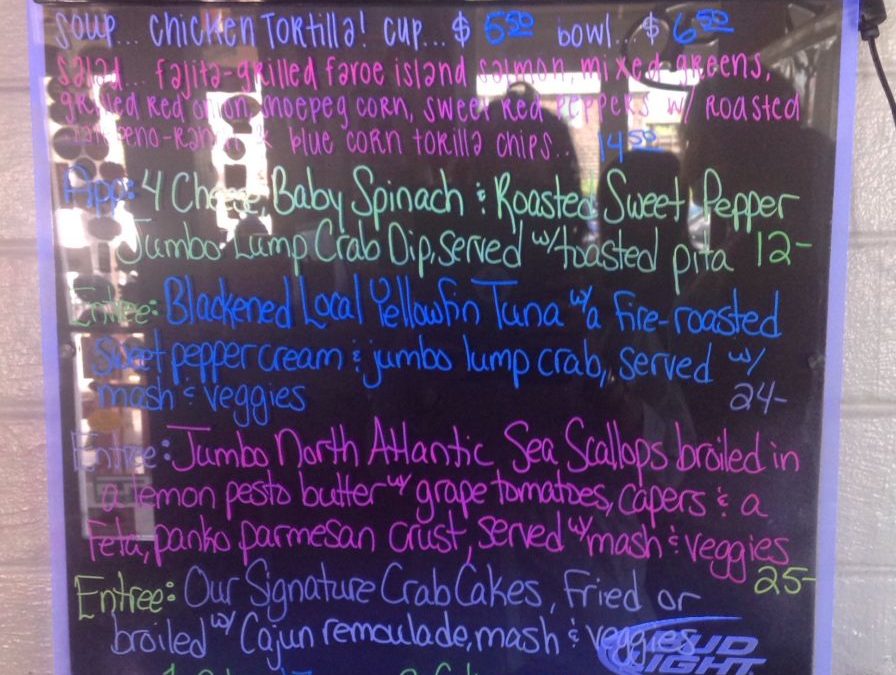 Soup... Chicken Tortilla! cup...$ 5.50 bowl...$ 6.50
Salad... fajita-grilled faroe island salmon, mixed greens,
grilled red onion, shoepeg corn, sweet red peppers w/ roasted
jalapeno-ranch & blue corn torilla chips... 14.50
App: 4 Cheese, Baby Spinach & Roasted Sweet Pepper
Jumbo Lump Crab Dip, served w/ toasted pita 12-
Entree: Blackened Local Yellowfin Tuna w/ a fire-roasted
sweet pepper cream & jumbo lump crab, served w/
mash & veggies 24-
Entree: Jumbo North Atlantic Sea Scallops broiled in
a lemon pesto butter w/ grape tomatoes, capers & a
feta, panko parmesan crust, served w/ mash & veggies
25-
Entree: Our Signature Crab Cakes, Fried or
broiled w/ Cajun remoulade, mash & veggies
BUD
LIGHT